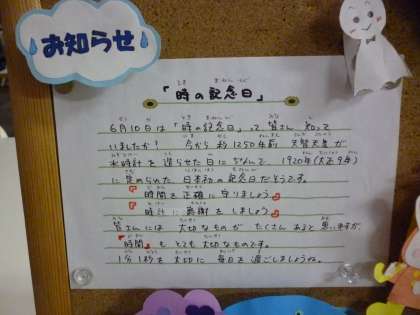 お知らせ
「時の記念日」
6月10日は「時の記念日」って皆さん知って
いましたか？ 今から約1350年前 天智天皇が
水時計を造らせた日にちなんで、1920年（大正9年）
に定められた 日本初の記念日だそうです。
『時間を正確に守りましょう』
『時計に感謝をしましょう』
皆さんには 大切なものが たくさんあると思いますが、
『時間』も とても大切なものです。
1分1秒を大切に 毎日を過ごしましょうね。